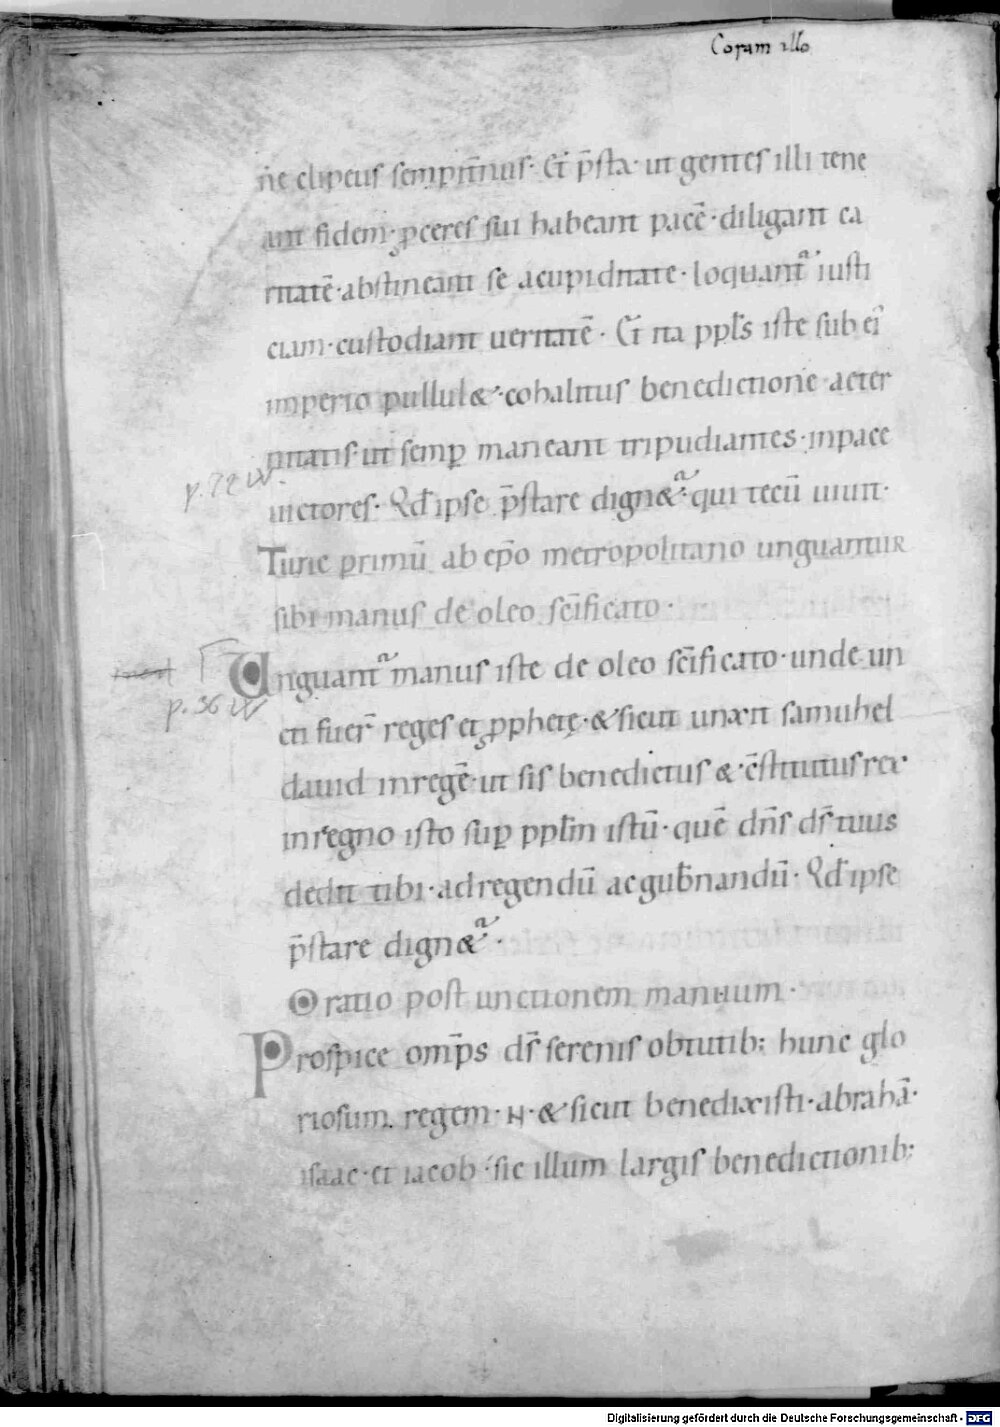 Coram illo
ne clipeus sempit̄nus· Et p̄sta· ut gentes illi tene
ant fidem· ꝓceres sui habeant pacē· diligant ca
ritatē· abstineant se acupiditate· loquant᷑ iusti
ciam· custodiant ueritatē· Et ita ppl̄s iste sub ei᷑
imperio pullul&· cohalitus benedictione aeter
nitatis· ut semꝑ maneant tripudiantes· inpace
uictores· Qd̄ ipse p̄stare dign&᷑· qui tecū uiuit·
p. 72 W.
Tunc primū ab ep̄o metropolitano unguantur
sibi manus de oleo sc̄ificato·
Unguant᷑ manus iste de oleo sc̄ificato· unde un
p. 36 W
cti fuer̄ reges et ꝓphetę· & sicut unxit samuhel
dauid inregē· ut sis benedictus &· c̄stitutus rex
inregno isto suꝑ ppl̄m istū· quē dn̄s ds̄ tuus
dedit tibi· adregendū ac gub̄nandū· Qd̄ ipse
p̄stare dign&᷑·
Oratio post unctionem manuum·
Prospice om̄ps ds̄ serenis obtutib; hunc glo
riosum regem· N· & sicut benedixisti· abrahā·
isaac· et iacob· sic illum largis benedictionib;
Digitalisierung gefördert durch die Deutsche Forschungsgemeinschaft - DFG